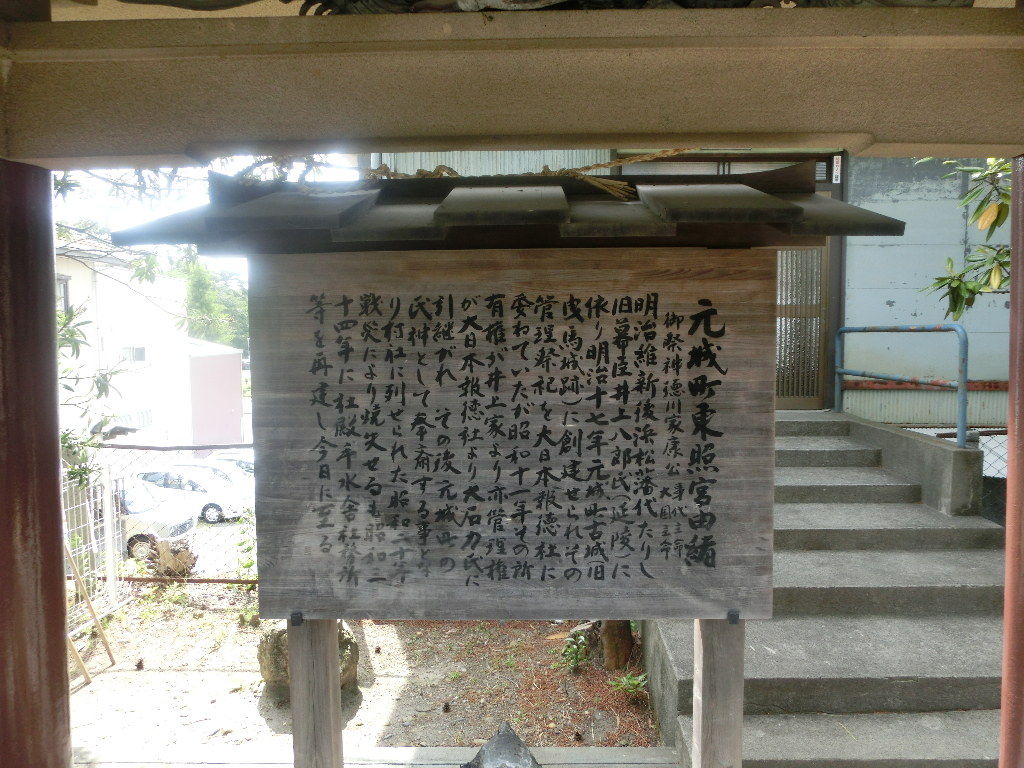 元城町東照宮由緒
御祭神徳川家康公 事代主命 大国主命
明治維新後浜松藩代たりし
旧幕臣井上八郎氏(延陵)に
依り明治十七年元城町古城旧
曳馬城跡)に創建せられその
管理祭祀を大日本報徳社に
委ねていたが昭和十一年その所
有権が井上家より亦管理権
が大日本報徳社より大石力氏に
引継がれ その後元城町の
氏神として奉斎する事とな
り村社に列せられた昭和二十年
戦災により焼失せるも昭和三
十四年に社殿手水舎社務所
等を再建し今日に至る